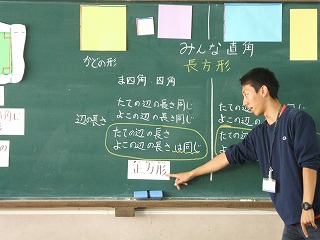 みんな直角
かどの形
長方形
ま四角 四角
たての辺の長さ同じ
よこの辺の長さ同じ
辺の長さ
たての辺の長さ
よこの辺の長さは同じ
正方形
たての辺
よこの辺
たての
よこの